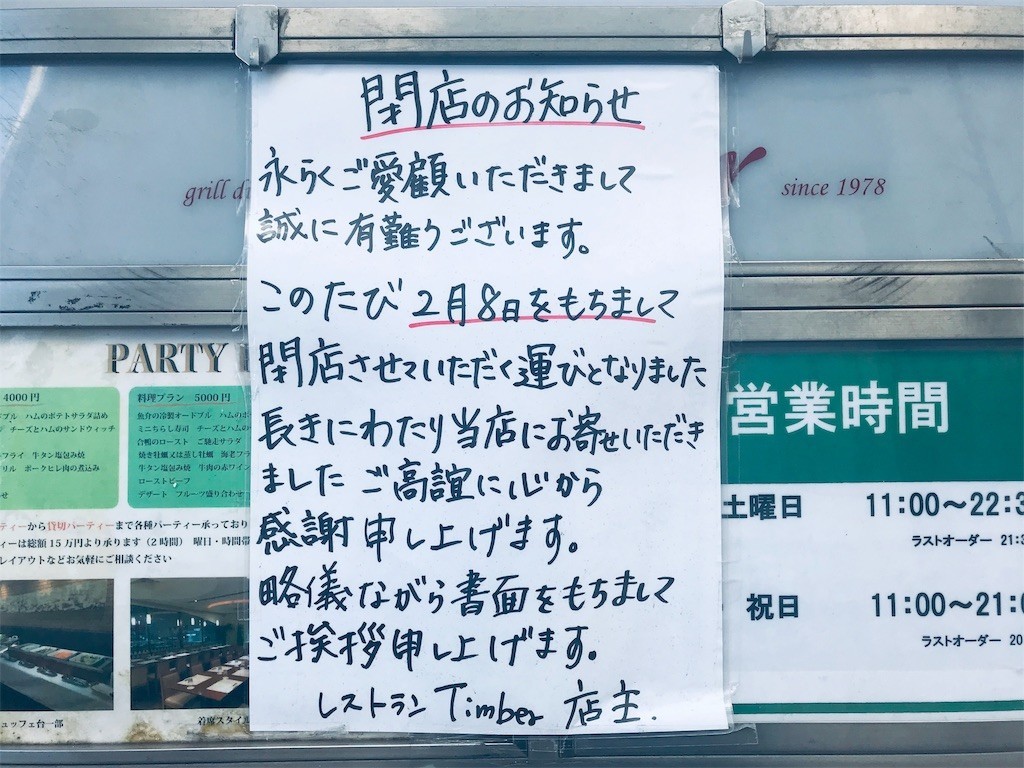 閉店のお知らせ
永らくご愛顧いただきまして
誠に有難うございます。
このたび2月8日をもちまして
閉店させていただく運びとなりました
長きにわたり当店にお寄せいただき
ましたご高誼に心から
感謝申し上げます。
略儀ながら書面をもちまして
ご挨拶申し上げます。
レストラン Timber 店主.
grill
since 1978
PARTY
4000円
ハムのポテトサラダ詰め
チーズとハムのサンドウィッチ
フライ 牛タン塩包み焼
ポークヒレ肉の煮込み
料理プラン 5000円
魚介の冷製オードブル ハムのポ
ミニちらし寿司 チーズとハムの
合鴨のロースト ご馳走サラダ
焼き牡蠣又は蒸し牡蠣 海老フラ
牛タン塩包み焼 牛肉の赤ワイン
ローストビーフ
デザート フルーツ盛り合わせ
ティーから貸切パーティーまで各種パーティー承っており
ィーは総額15万円より承ります(2時間) 曜日・時間帯
レイアウトなどお気軽にご相談ください
ュッフェ台一部
着席スタイル
営業時間
土曜日 11:00～22:3
ラストオーダー 21:3
祝日 11:00～21:0
ラストオーダー 20